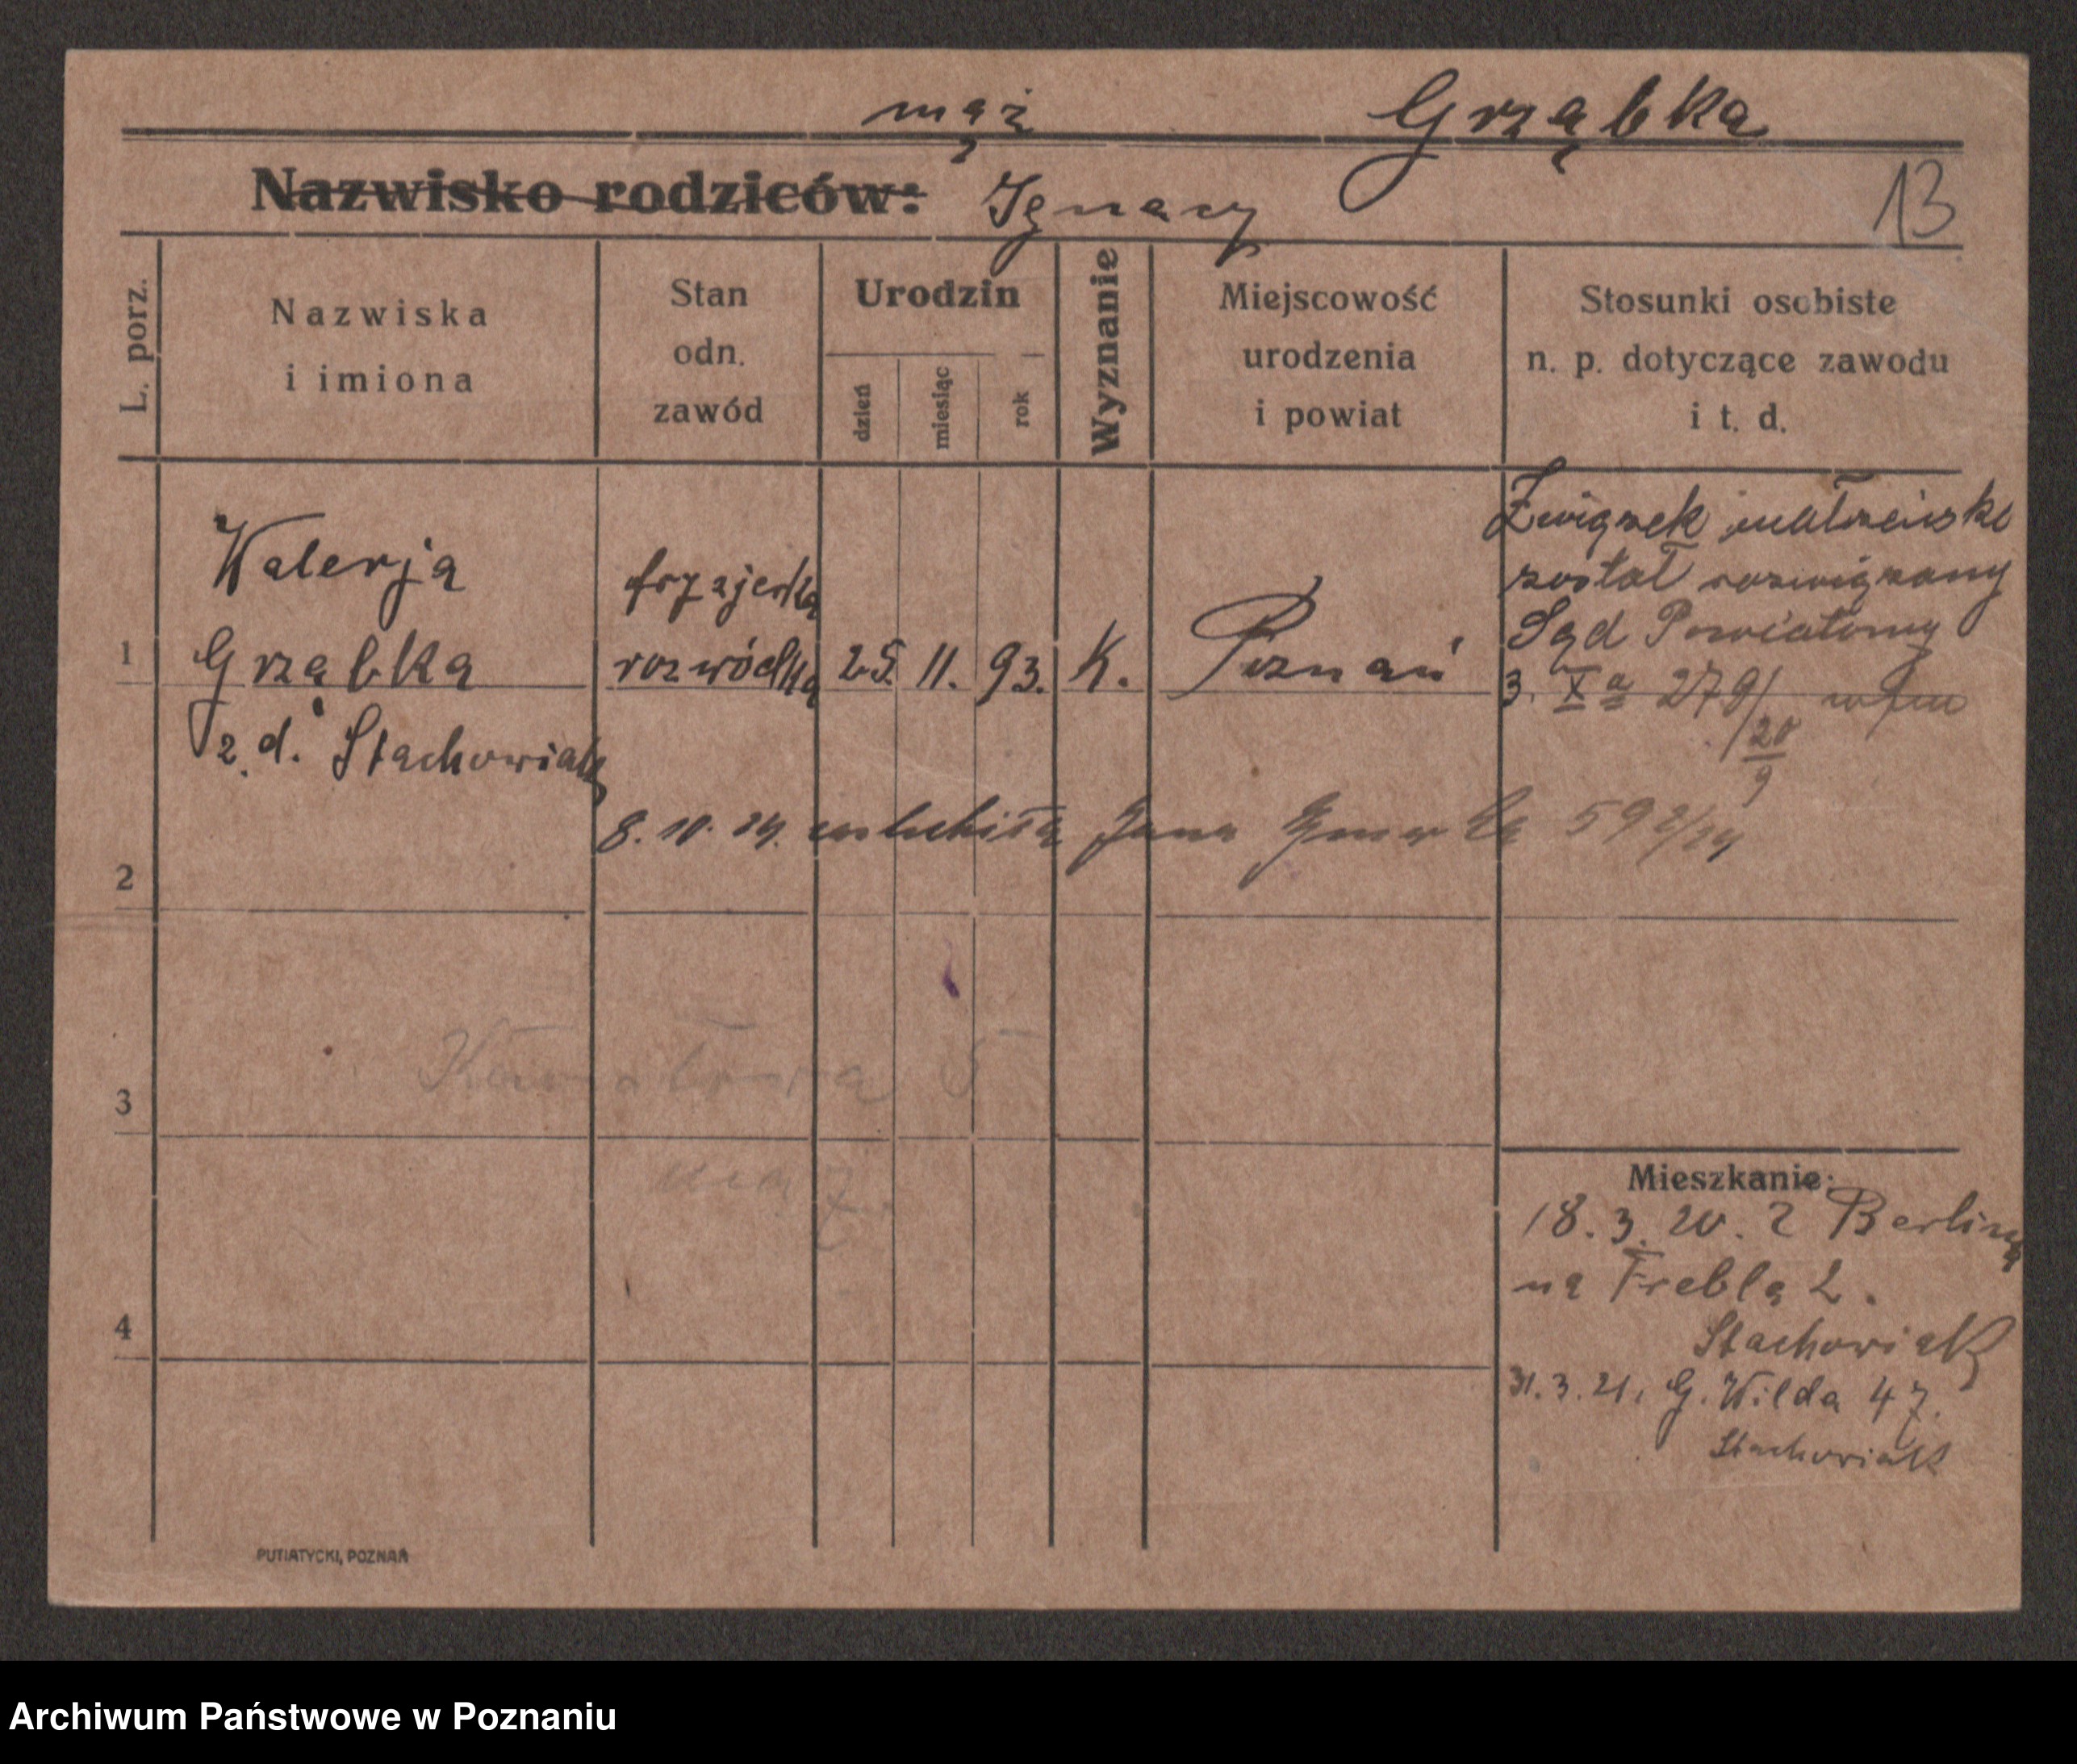 mąż Grząbka
Nazwisko rodziców: Ignacy
13
L. porz.
Nazwiska
i imiona
Stan
odn.
zawód
Urodzin
dzień
miesiąc
rok
Wyznanie
Miejscowość
urodzenia
i powiat
Stosunki osobiste
n. p. dotyczące zawodu
i t. d.
1
Walerja
Grząbka
z d. Stachowiak
fryzjerka
rozwódka
25. 11. 93.
K.
Poznań
Związek małżeński
został rozwiązany
Sąd Powiatowy
3. X a 279/
20
9
8. 10. 24. zaślubiła Jana 592/24
2
3
4
Mieszkanie:
18. 3. 20. z Berlina
na Frebla 2.
Stachowiak
31. 3. 21. G. Wilda 47.
Stachowiak
PUTIATYCKI, POZNAŃ
Archiwum Państwowe w Poznaniu